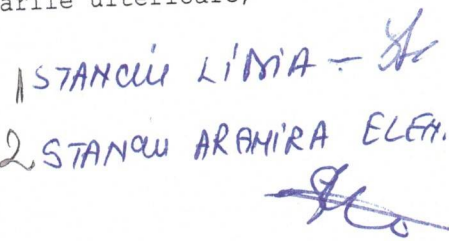 ările ulterioare,
1 STANCIU LIDIA -
2 STANCIU ARAMIRA ELEN.